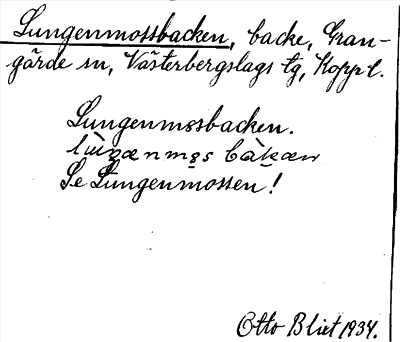 Lungenmossbacken, backe, Gran-
gärde sn, Västerbergslags tg, Kopp l.
Lungenmossbacken.
Se Lungenmossen!
Otto Blixt 1934.